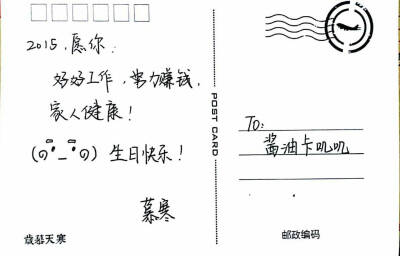 2015，愿你：
好好工作，努力赚钱，
家人健康！
生日快乐！
慕寒
POST CARD
TO：
酱油卡叽叽
邮政编码